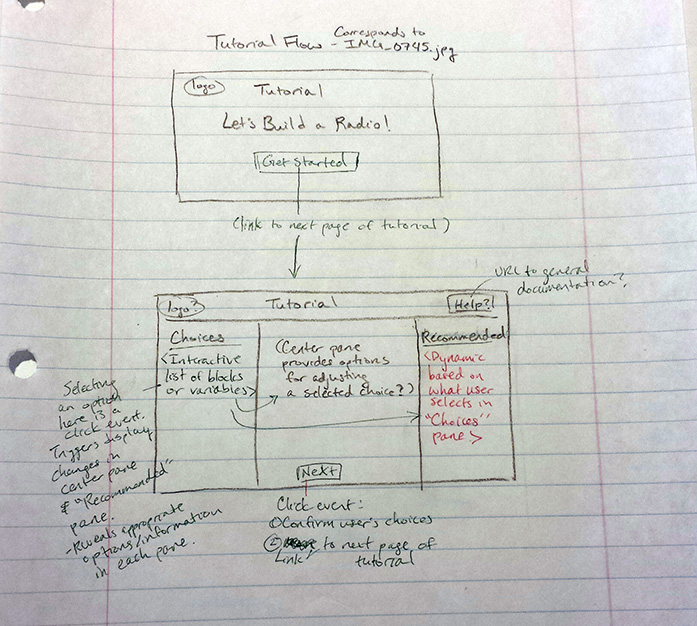 Tutorial Flow - Corresponds to IMG_0745.jpg
logo
Tutorial
Let's Build a Radio!
Get Started
(link to next page of tutorial)
URL to general
documentation?
logo?
Tutorial
Help?
Choices
<Interactive
list of blocks
or variables>
(Center pane
provides options
for adjusting
a selected choice?)
Recommended
<Dynamic
based on
what user
selects in
"Choices"
pane>
Selecting
an option
here is a
click event.
Triggers display
changes in
center pane
& "Recommended"
pane.
-Reveals appropriate
options/information
in each pane.
Next
Click event:
① Confirm user's choices
② Link to next page of
tutorial